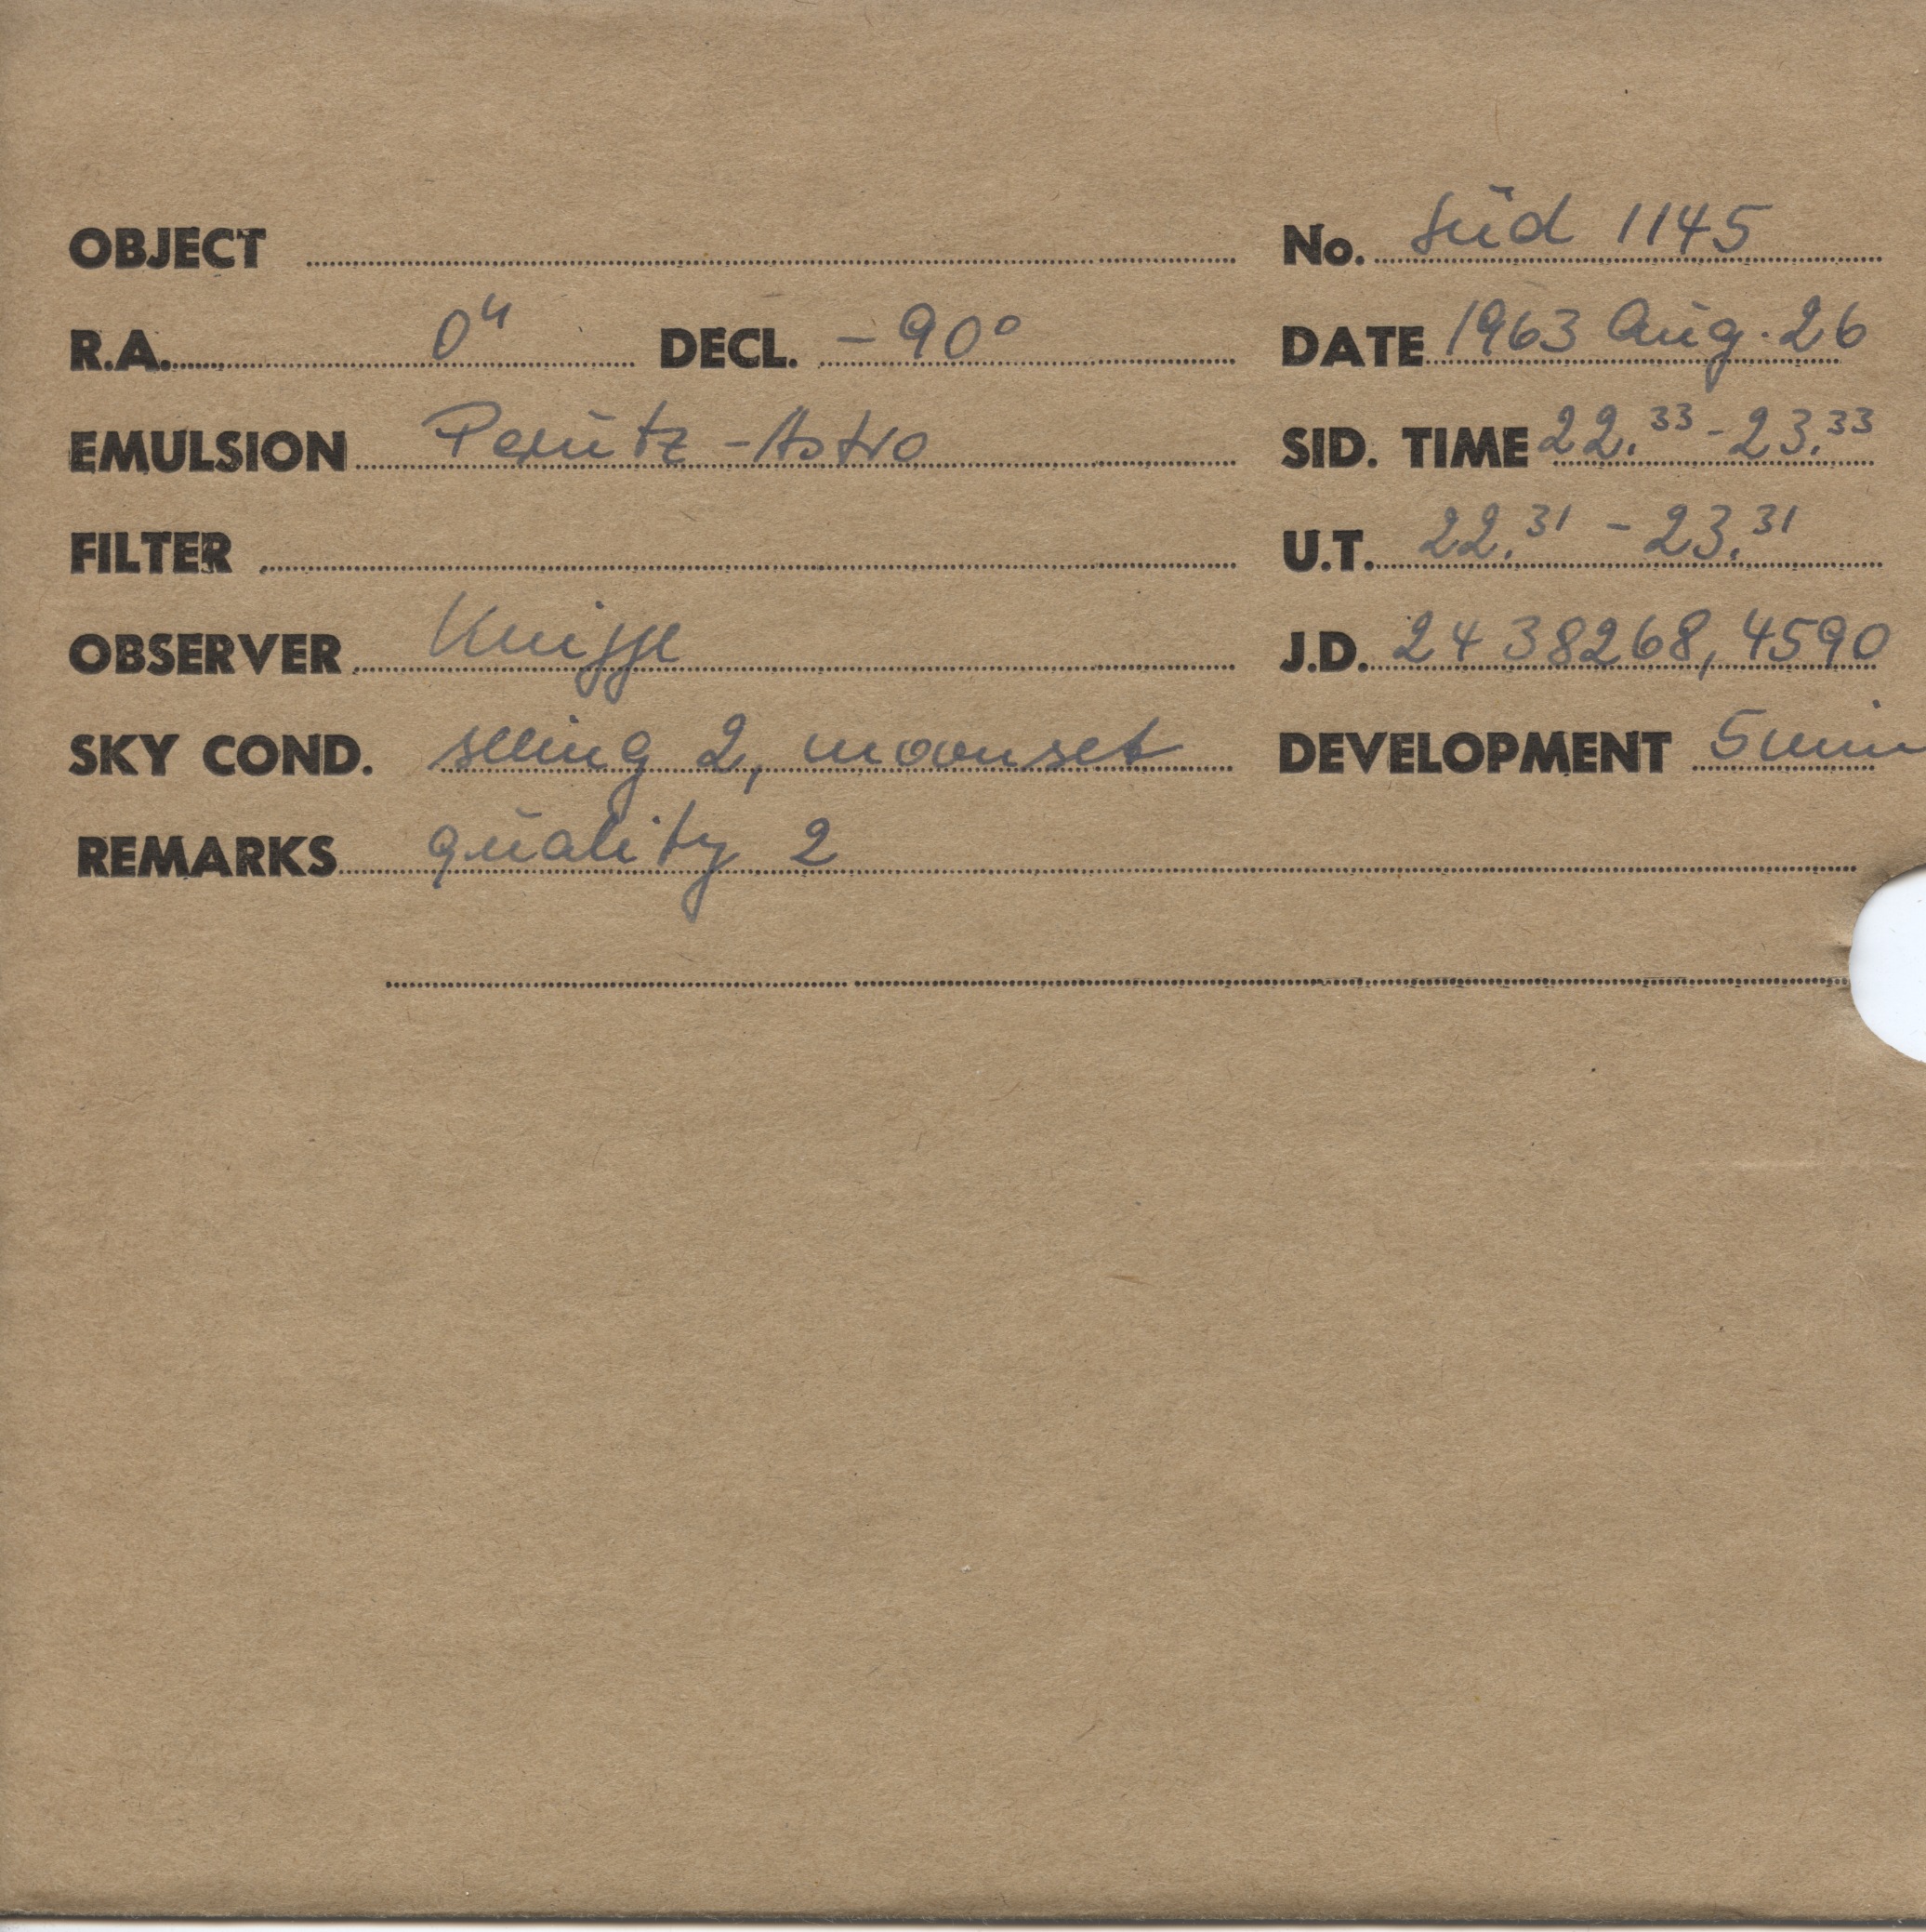 OBJECT No. Süd 1145
R.A. 0h DECL. -90° DATE 1963 Aug. 26
EMULSION Perutz-Astro SID. TIME 22.33 - 23.33
FILTER U.T. 22.31 - 23.31
OBSERVER Knigge J.D. 2438268,4590
SKY COND. seeing 2, moonset DEVELOPMENT 5 min
REMARKS quality 2